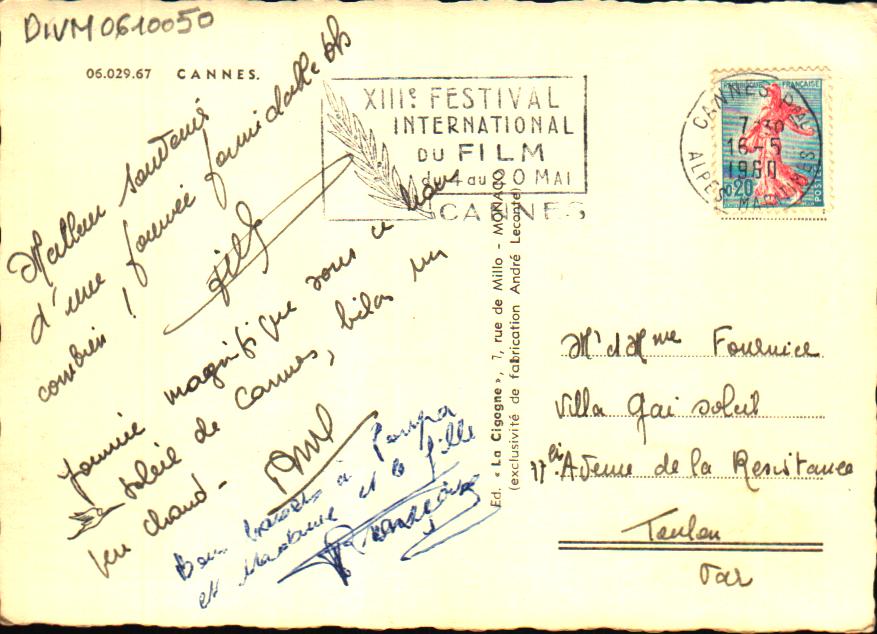 DIVM0610050
06.029.67 CANNES.
XIIIe FESTIVAL
INTERNATIONAL
DU FILM
du 4 au 20 MAI
CANNES
CANNES
7 30
16-5
1960
ALPES MARITIMES
FRANÇAISE
0,20
POSTES
souvenir
d'une journée formidable
combien !
Journée magnifique sous ce
soleil de Cannes, hélas un
peu chaud -
à
et Madame et la fille
Ed. « La Cigogne », 7, rue de Millo - MONACO
(exclusivité de fabrication André Leconte)
Mr et Mme Fournier
Villa Gai soleil
Avenue de la Resistance
Toulon
Var